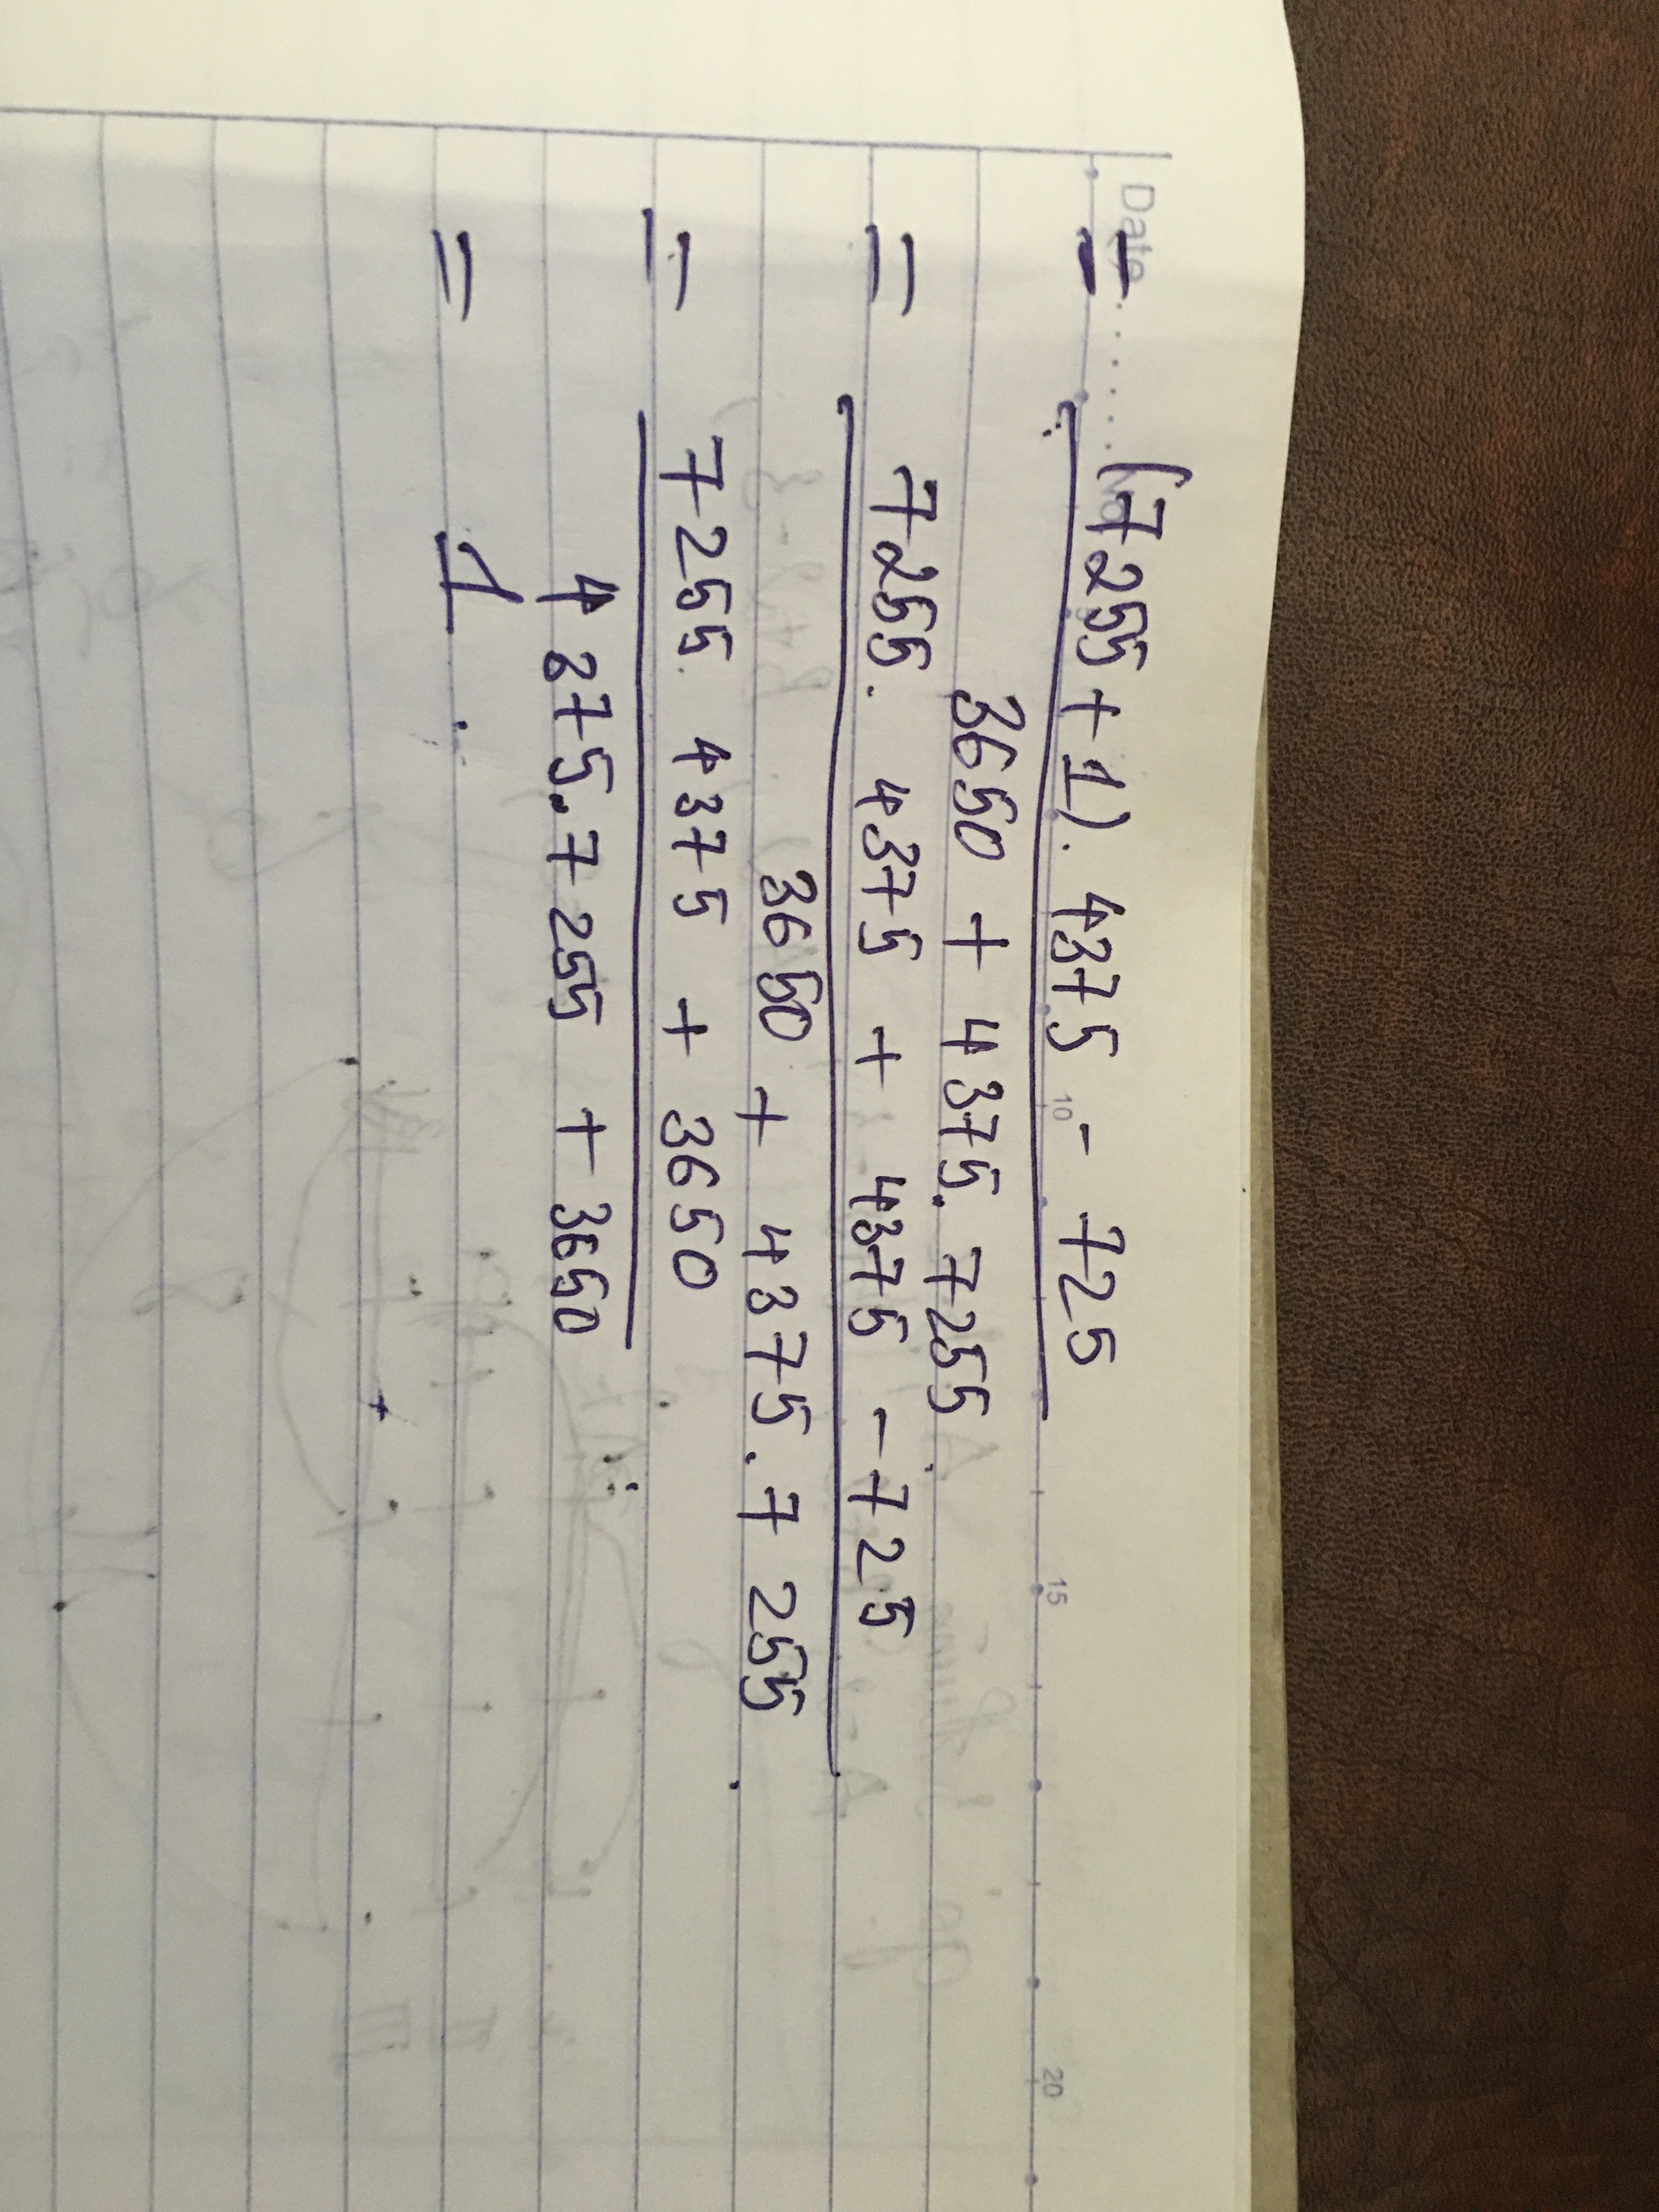 Date. . . . . . No
= (7255+1). 4375 - 725
3650 + 4375. 7255
10 15 20
= 7255. 4375 + 4375 - 725
3650 + 4375. 7255
= 7255. 4375 + 3650
4375. 7255 + 3650
= 1.